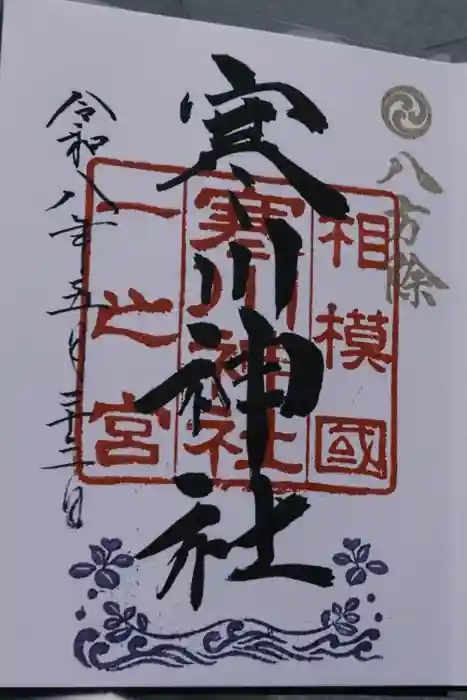 八方除
相模國
寒川神社
一之宮
寒川神社
令和八年五月三十二日